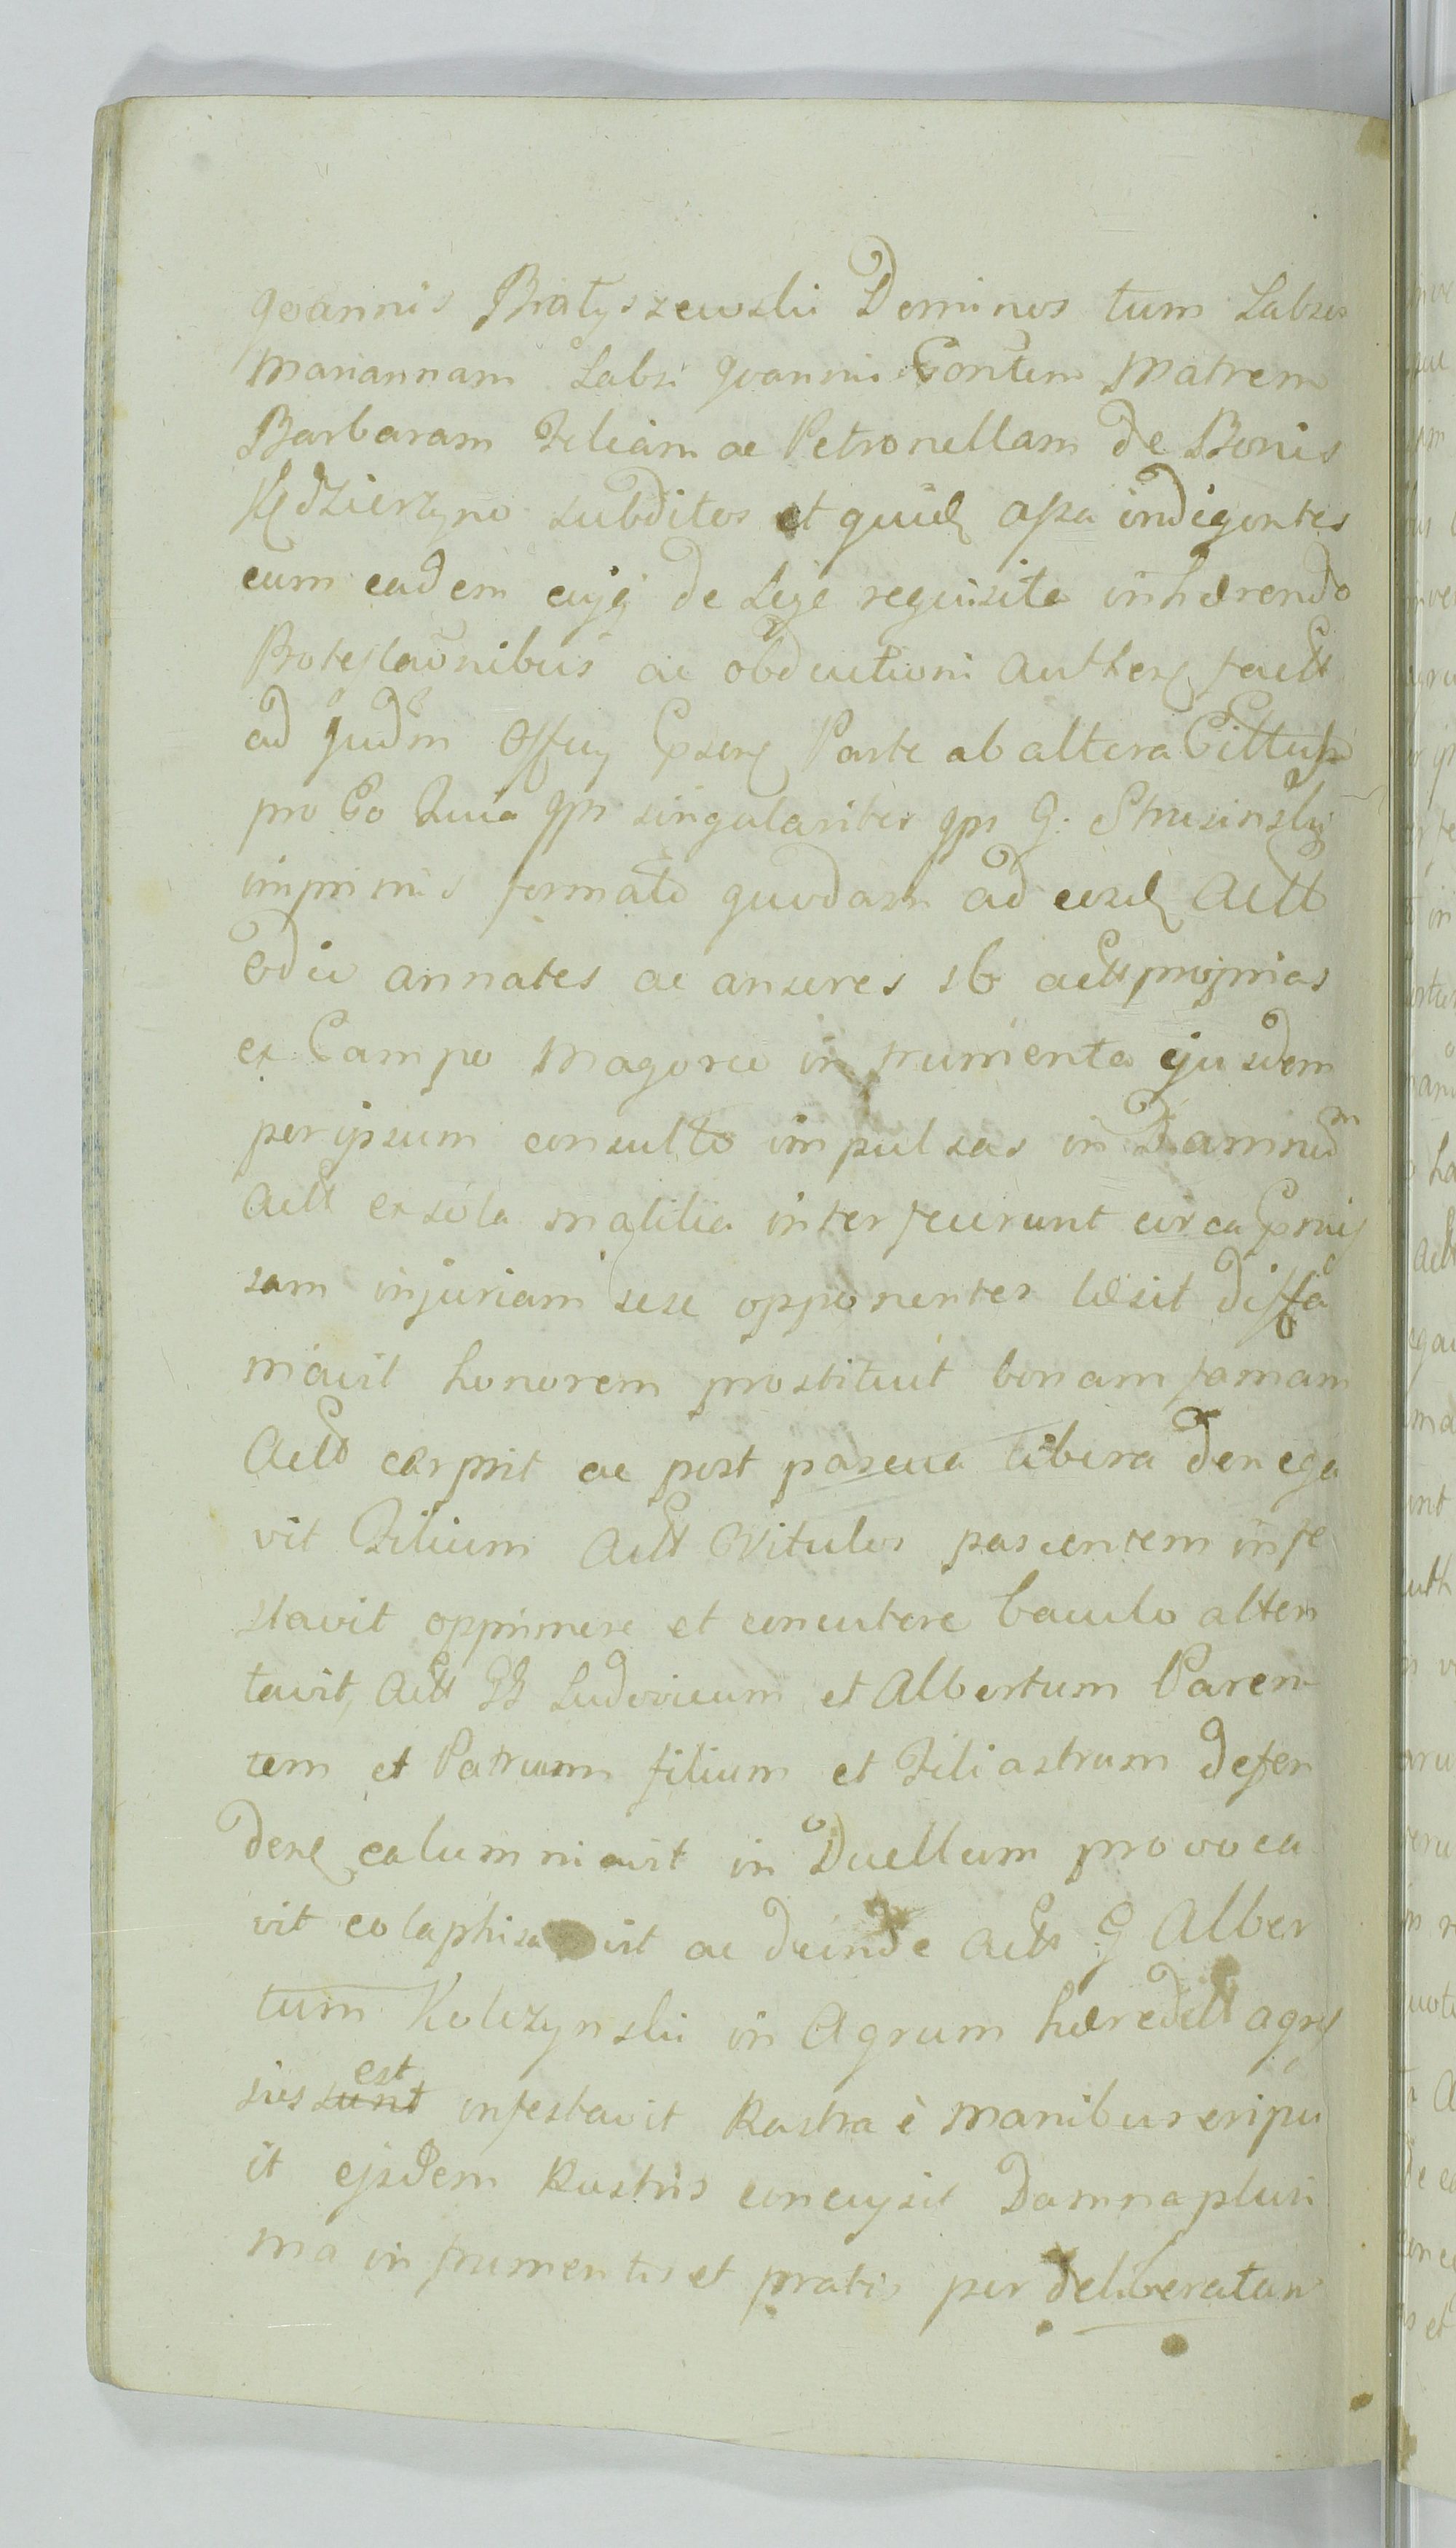 Joannis Białyszewskii Dominos tum Labor
Mariannam Labri Joannis Contem Matrem
Barbaram Filiam ac Petronellam de Bonis
Kędzierzyno subditos et quid apa indigentes
cum eadem de Lege requisita inhærendo
Protestaonibus ac obductioni auther factt
ad Judm Parte ab altera Cittus
pro Eo Quia qpr singulariter qpr G. Strusinsky
imprimis formato quodam ad eosd Actt
odio annates ac anseres sb actt proprias
ex Campo Magorce in frumenta ejusdem
per ipsum consulto impulsas in Damnu
Actt ex sola malitia interfecurunt circa
sam injuriam sese opponentes læsit diffa
mavit honorem prostituit bonam famam
Actt carpsit ac post pascua libera denega
vit Filium Actt Vitulos pascentem infe
stavit opprimere et concutere baculo atten
tavit, Actt GG Ludovicum et Albertum Paren
tem et Patruum filium et Filiastrum defen
dere calumniavit in Duellum provoca
vit colaphisavit ac deinde Actt G Alber
tum Kolczynskii in Agrum hæreditt agres
sus sunt est infestavit Rastra è manibus eripu
it ejsdem Rastris concussit Damna pluri
ma in frumentis et pratis per deliberatan